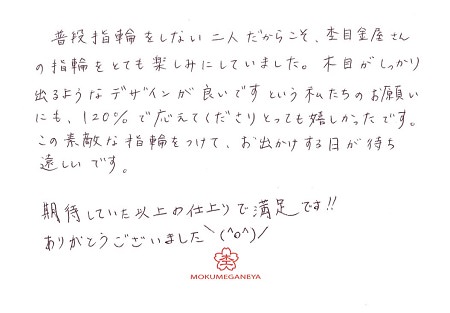 普段指輪をしない二人だからこそ、杢目金屋さん
の指輪をとても楽しみにしていました。木目がしっかり
出るようなデザインが良いですという私たちのお願い
にも、120%で応えてくださりとっても嬉しかったです。
この素敵な指輪をつけて、お出かけする日が待ち
遠しいです。
期待していた以上の仕上りで満足です!!
ありがとうございました\(^o^)/
杢
MOKUMEGANEYA